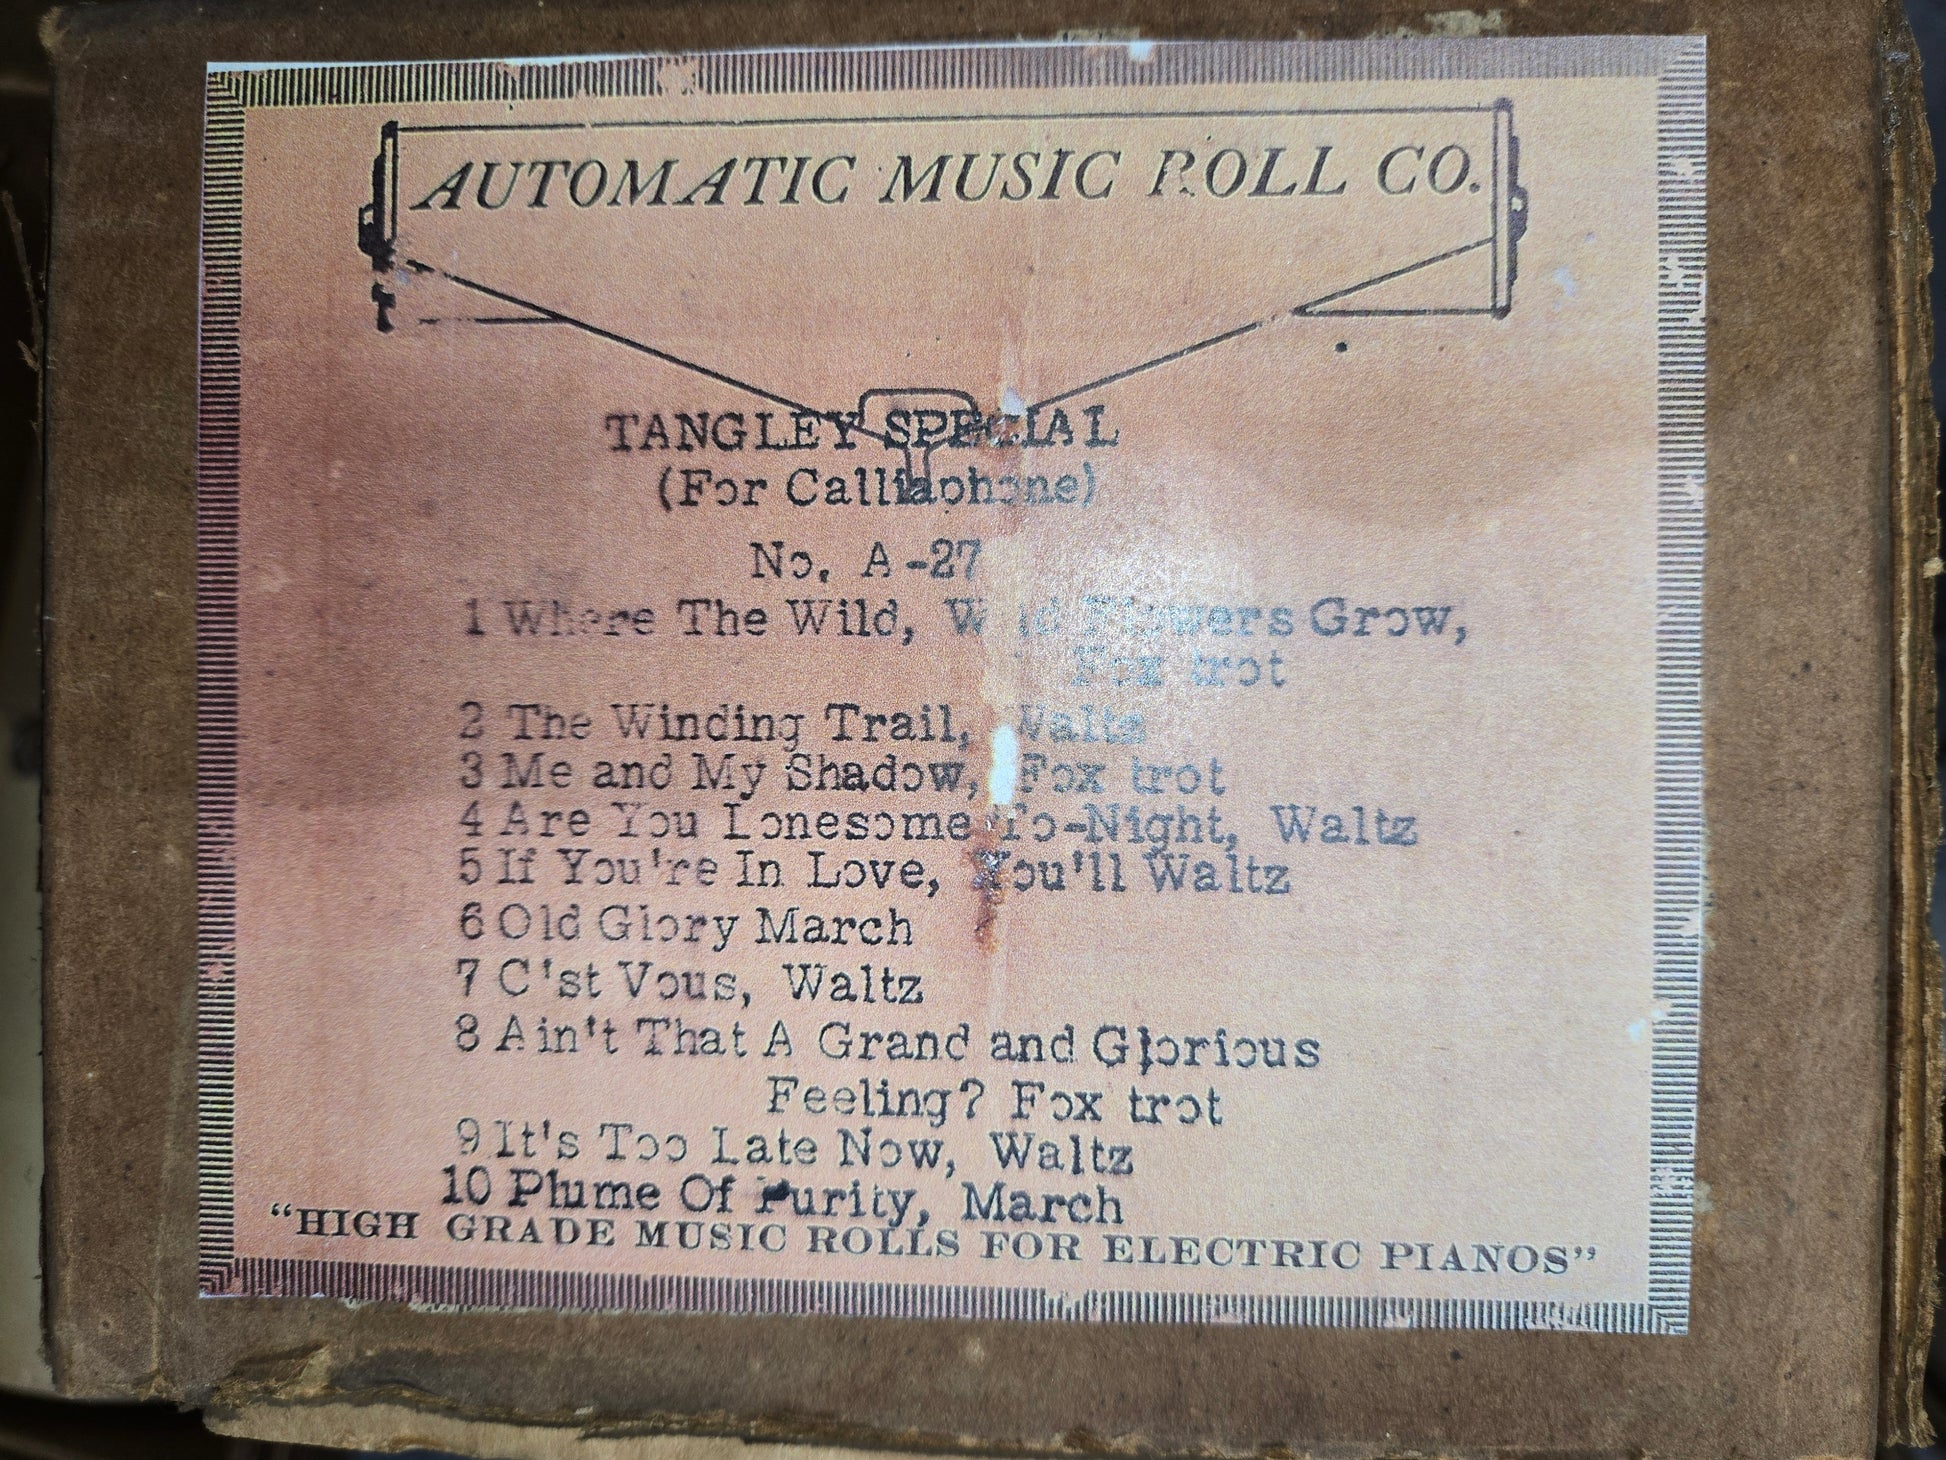 AUTOMATIC MUSIC ROLL CO.
TANGLEY SPECIAL
(For Calliaphone)
No. A-27
1 Where The Wild, Wild Flowers Grow,
Fox trot
2 The Winding Trail, Waltz
3 Me and My Shadow, Fox trot
4 Are You Lonesome To-Night, Waltz
5 If You're In Love, You'll Waltz
6 Old Glory March
7 C'st Vous, Waltz
8 Ain't That A Grand and Glorious
Feeling? Fox trot
9 It's Too Late Now, Waltz
10 Plume Of Purity, March
"HIGH GRADE MUSIC ROLLS FOR ELECTRIC PIANOS"